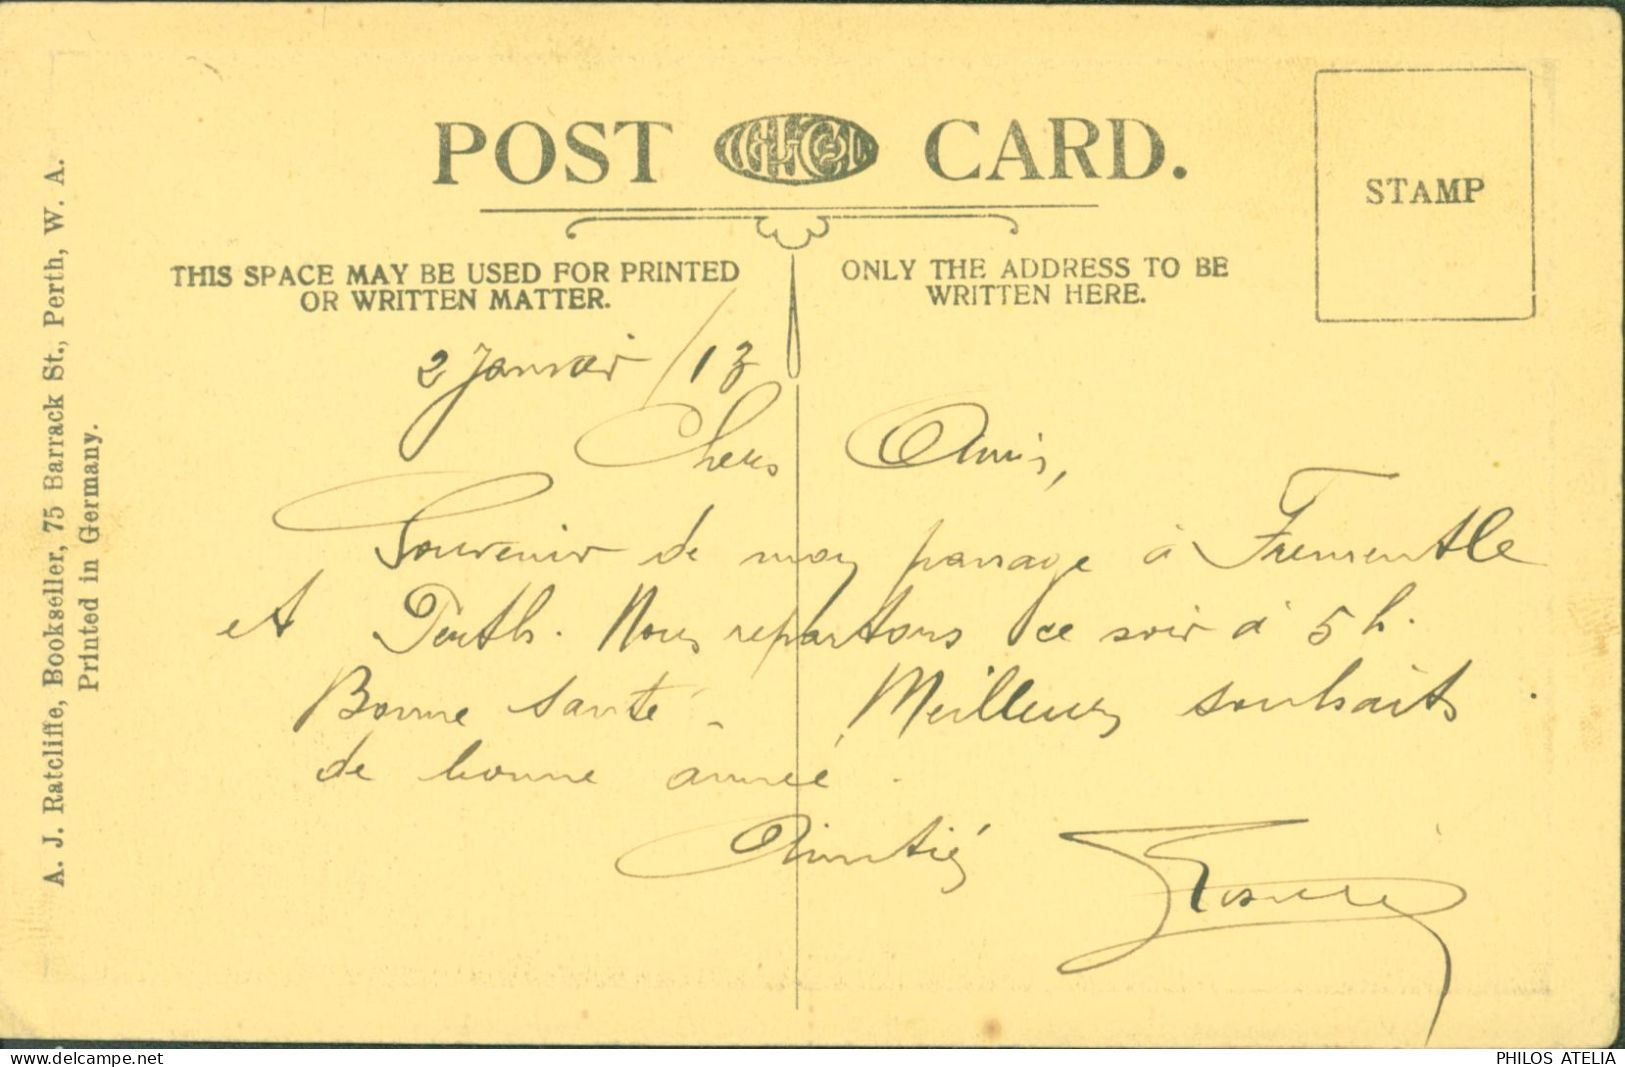 POST CARD.
STAMP
THIS SPACE MAY BE USED FOR PRINTED
OR WRITTEN MATTER.
ONLY THE ADDRESS TO BE
WRITTEN HERE.
A. J. Ratcliffe, Bookseller, 75 Barrack St., Perth, W. A.
Printed in Germany.
2 Janvier / 13
Chers Amis,
Souvenir de mon passage à Frementle
et Perth. Nous repartons ce soir à 5 h.
Bonne santé - Meilleurs souhaits
de bonne année.
Amitiés
PHILOS ATELIA